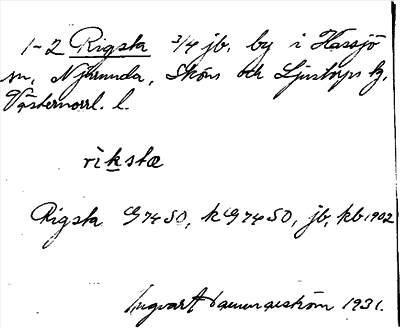 1-2 Rigsta 3/4 jb. by i Hässjö
sn, Njurunda, Sköns och Ljustorps tg,
Västernorrl. l.
rìkstæ
Rigsta G 74 SO, kG 74 SO, jb, kb 1902
Ingvart 1931.